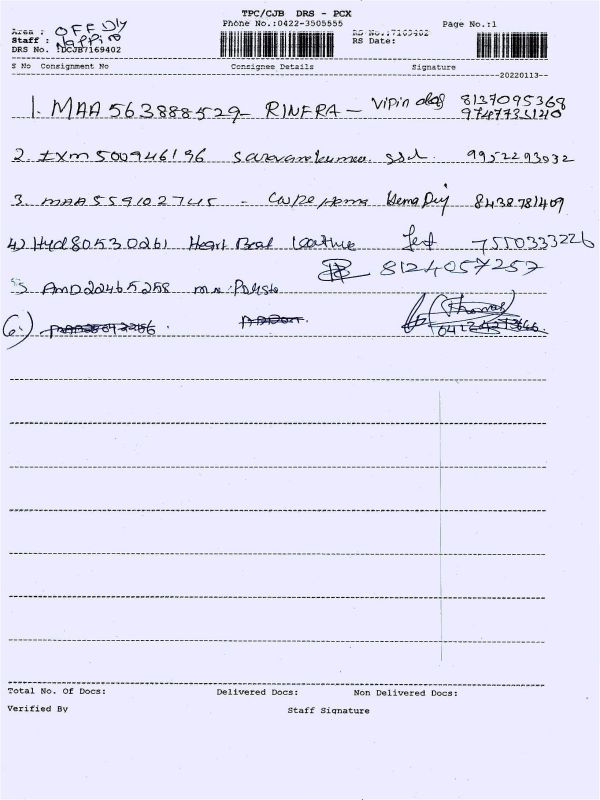 TPC/CJB DRS - PCX
Phone No.:0422-3505555
Page No.:1
Area : OFF Dly
Staff :
DRS No. :DCJB7169402
RS No.:7169402
RS Date:
S No Consignment No Consignee Details Signature
20220113
1. MAA 563888529 RINFRA - Vipin 8137095368
9747733140
2. IXM 500946196 Saravanakumar 9952293032
3. MAA559102745 - Hema 8438781409
4) Hyd 80530261 Heart Beat 7550333226
8124057257
5. AMD22465258
6.)
Total No. Of Docs: Delivered Docs: Non Delivered Docs:
Verified By Staff Signature